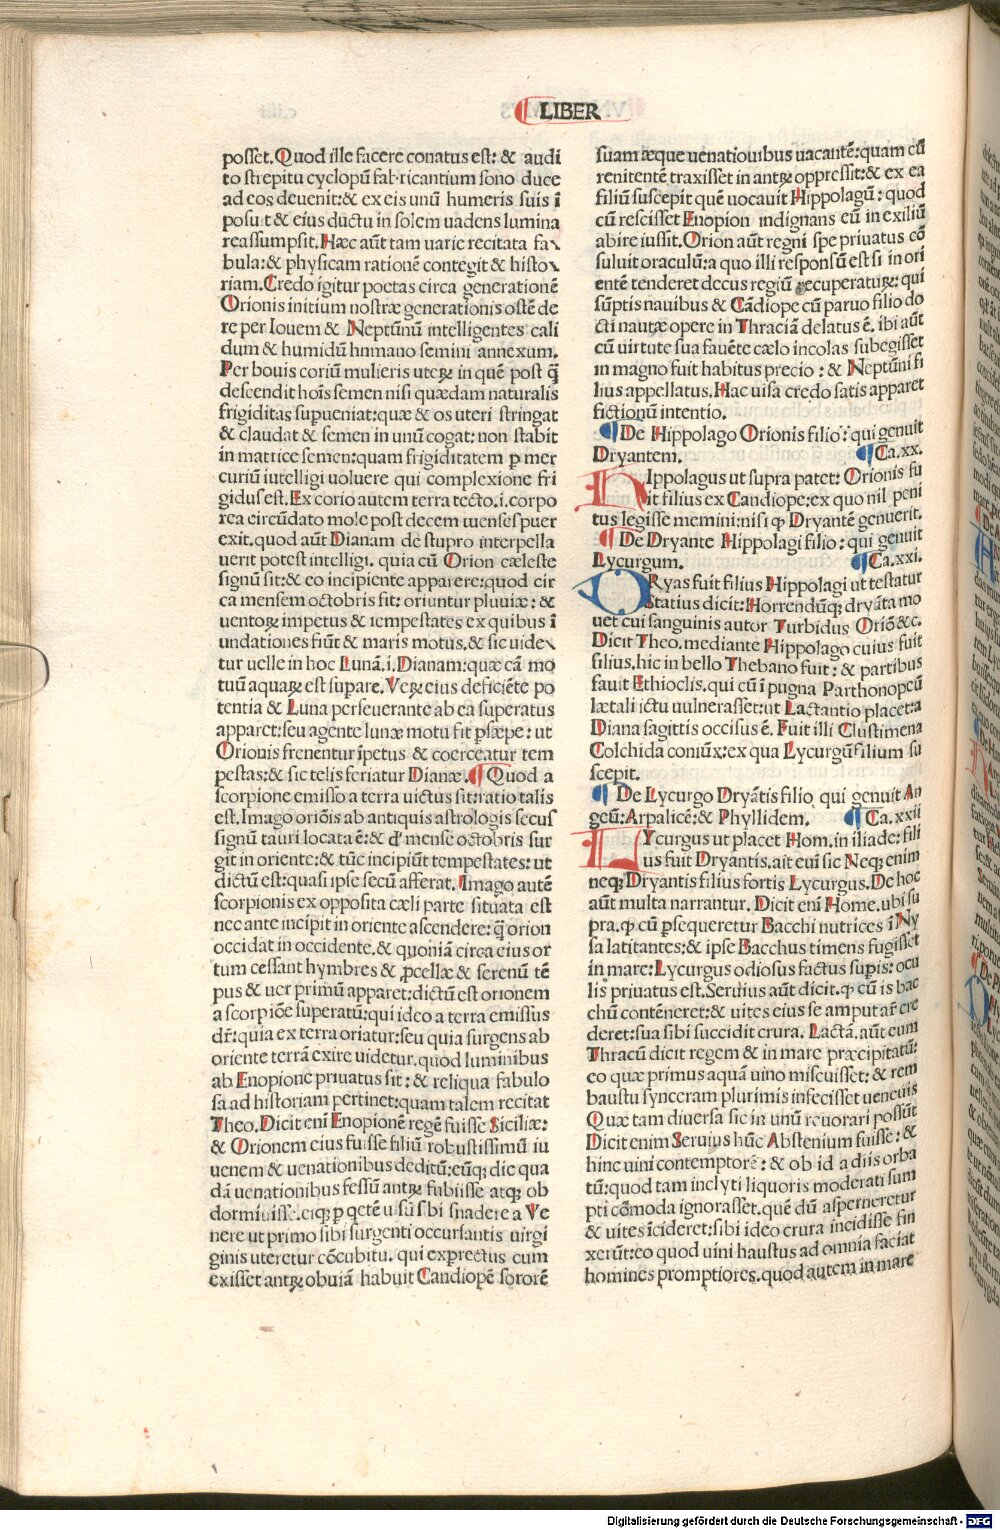 LIBER
posset. Quod ille facere conatus est: & audi
to strepitu cyclopū fabricantium sono duce
ad eos deuenit: & ex eis unū humeris suis ī
posuit & eius ductu in solem uadens lumina
reassumpsit. Hæc aūt tam uarie recitata fa
bula: & physicam rationē contegit & histo
riam. Credo igitur poetas circa generationē
Orionis initium nostræ generationis ostēde
re per Iouem & Neptūnū intelligentes cali
dum & humidū hnmano semini annexum.
Per bouis coriū mulieris uterꝫ in quē post q̄
descendit hoīs semen nisi quædam naturalis
frigiditas supueniat: quæ & os uteri stringat
& claudat & semen in unū cogat: non stabit
in matrice semen: quam frigiditatem ꝑ mer
curiū intelligi uoluere qui complexione fri
gidus est. Ex corio autem terra tecto .i. corpo
rea circūdato mole post decem menses puer
exit. quod aūt Dianam de stupro interpella
uerit potest intelligi. quia cū Orion cæleste
signū sit: & eo incipiente apparere: quod cir
ca mensem octobris fit: oriuntur pluuiæ: &
uentoꝝ impetus & tempestates ex quibus ī
undationes fiūt & maris motus. & sic uide
tur uelle in hoc Lunā .i. Dianam: quæ cā mo
tuū aquaꝝ est supare. Veꝝ eius deficiēte po
tentia & Luna perseuerante ab ea superatus
apparet: seu agente lunæ motu fit ꝑsæpe: ut
Orionis frenentur īpetus & coerceatur tem
pestas: & sic telis feriatur Dianæ. Quod a
scorpione emisso a terra uictus sit: ratio talis
est. Imago oriōis ab antiquis astrologis secus
signū tauri locata ē: & d' mense octobris sur
git in oriente: & tūc incipiūt tempestates: ut
dictū est: quasi ipse secū afferat. Imago autē
scorpionis ex opposita cæli parte situata est
nec ante incipit in oriente ascendere: q̄ orion
occidat in occidente. & quoniā circa eius or
tum cessant hymbres & ꝓcellæ & serenū tē
pus & uer primū apparet: dictū est orionem
a scorpiōe superatū: qui ideo a terra emissus
dr̄: quia ex terra oriatur: seu quia surgens ab
oriente terrā exire uidetur. quod luminibus
ab Enopione priuatus sit: & reliqua fabulo
sa ad historiam pertinet: quam talem recitat
Theo. Dicit enī Enopionē regē fuisse Siciliæ:
& Orionem eius fuisse filiū robustissimū iu
uenem & uenationibus deditū: eūqꝫ die qua
dā uenationibus fessū antrꝫ subiisse atqꝫ ob
dormiuisse. eiqꝫ
nere ut primo sibi surgenti occursantis uirgi
ginis uteretur cōcubitu. qui exprectus cum
exisset antrꝫ obuiā habuit Candiopē sororē
suam æque uenationibus uacantē: quam cū
renitentē traxisset in antrꝫ oppressit: & ex ea
filiū suscepit quē uocauit Hippolagū: quod
cū rescisset Enopion indignans eū in exiliū
abire iussit. Orion aūt regni spe priuatus cō
suluit oraculū: a quo illi responsū est si in ori
entē tenderet decus regiū recuperaturꝫ: qui
sūptis nauibus & Cādiope cū paruo filio do
cti nautæ opere in Thraciā delatus ē. ibi aūt
cū uirtute sua fauēte cælo incolas subegisset
in magno fuit habitus precio: & Neptūni fi
lius appellatus. Hac uisa credo satis apparet
fictionū intentio.
De Hippolago Orionis filio: qui genuit
Dryantem. Ca. xx.
Hippolagus ut supra patet: Orionis fu
it filius ex Candiope: ex quo nil peni
tus legisse memini: nisi ꝙ Dryantē genuerit.
De Dryante Hippolagi filio: qui genuit
Lycurgum. Ca. xxi.
DRyas fuit filius Hippolagi ut testatur
Statius dicit: Horrendūqꝫ dryāta mo
uet cui sanguinis autor Turbidus Oriō &c.
Dicit Theo. mediante Hippolago cuius fuit
filius. hic in bello Thebano fuit: & partibus
fauit Ethioclis. qui cū ī pugna Parthonopeū
lætali ictu uulnerasset: ut Lactantio placet: a
Diana sagittis occisus ē. Fuit illi Clustimena
Colchida coniūx: ex qua Lycurgū filium su
scepit.
De Lycurgo Dryātis filio qui genuit An
geū: Arpalicē: & Phyllidem. Ca. xxii
LYcurgus ut placet Hom. in iliade: fili
us fuit Dryantis. ait eni sic Neqꝫ enim
neqꝫ Dryantis filius fortis Lycurgus. De hoc
aūt multa narrantur. Dicit enī Home. ubi su
pra. ꝙ cū ꝑsequeretur Bacchi nutrices ī Ny
sa latitantes: & ipse Bacchus timens fugisset
in mare: Lycurgus odiosus factus supis: ocu
lis priuatus est. Seruius aūt dicit. ꝙ cū is bac
chū contēneret: & uites eius se amputar̄ cre
deret: sua sibi succidit crura. Lactā. aūt eum
Thracū dicit regem & in mare præcipitatū:
eo quæ primus aquā uino miscuisset: & rem
baustu synceram plurimis infecisset uencuis
Quæ tam diuersa sic in unū reuorari possūt
Dicit enim Seruius hūc Abstenium fuisse: &
hinc uini contemptorē: & ob id a diis orba
tū: quod tam inclyti liquoris moderati sum
pti cōmoda ignorasset. quē dū aspernaretur
& uites īcideret: sibi ideo crura incidisse fin
xerūt: eo quod uini haustus ad omnia faciat
homines promptiores. quod autem in mare
Digitalisierung gefördert durch die Deutsche Forschungsgemeinschaft - DFG